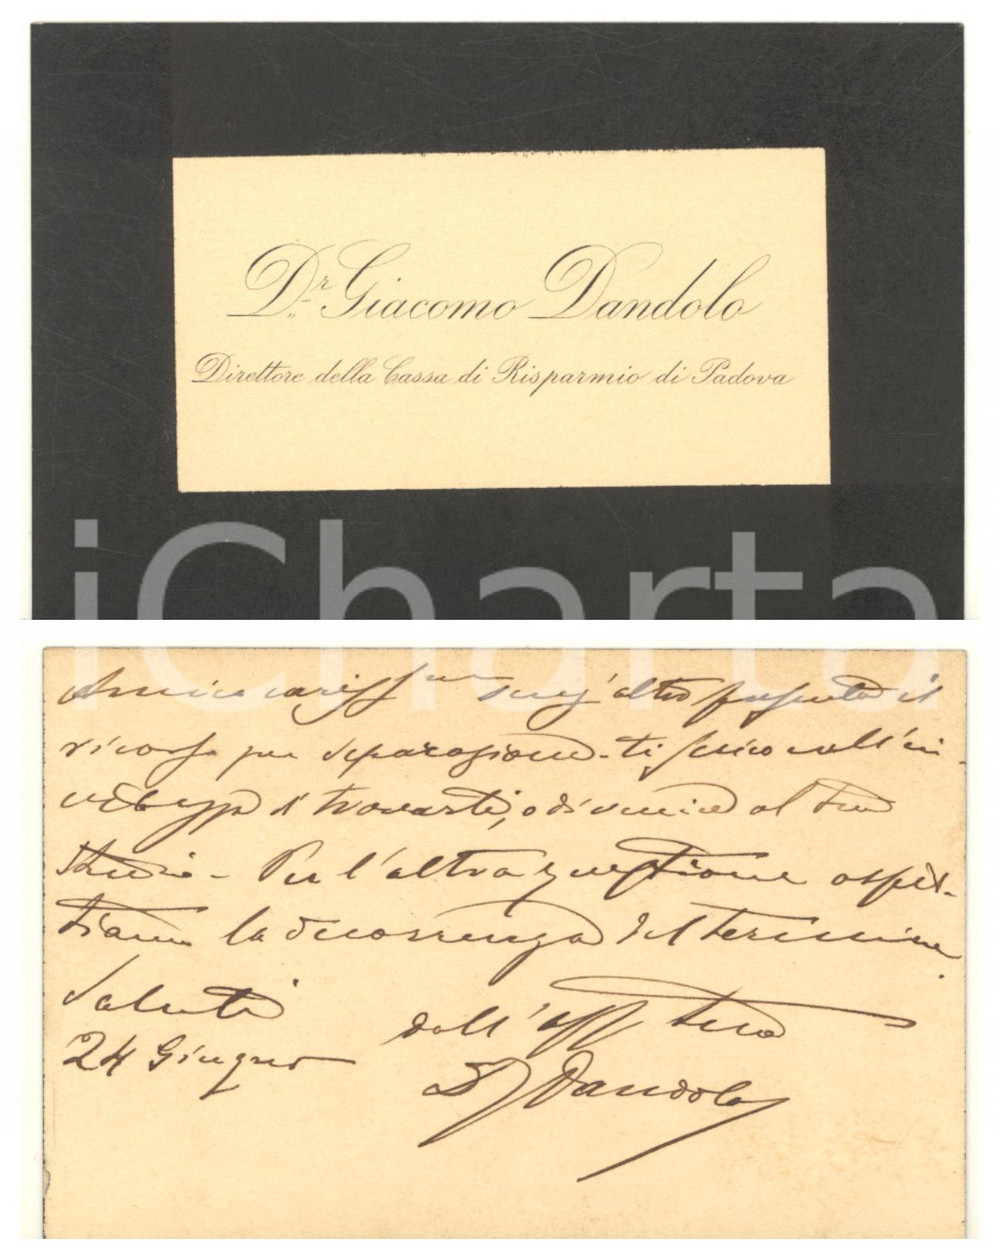 Dr. Giacomo Dandolo
Direttore della Cassa di Risparmio di Padova
iCharta
Amico cariss.mo senz'altro presenta il
ricorso per separazione - ti
di trovarti, o di venire al tuo
Studio - Per l'altra questione aspet-
tiamo la decorrenza del termine.
Saluti
dall'aff. tuo
24 Giugno
Dandolo